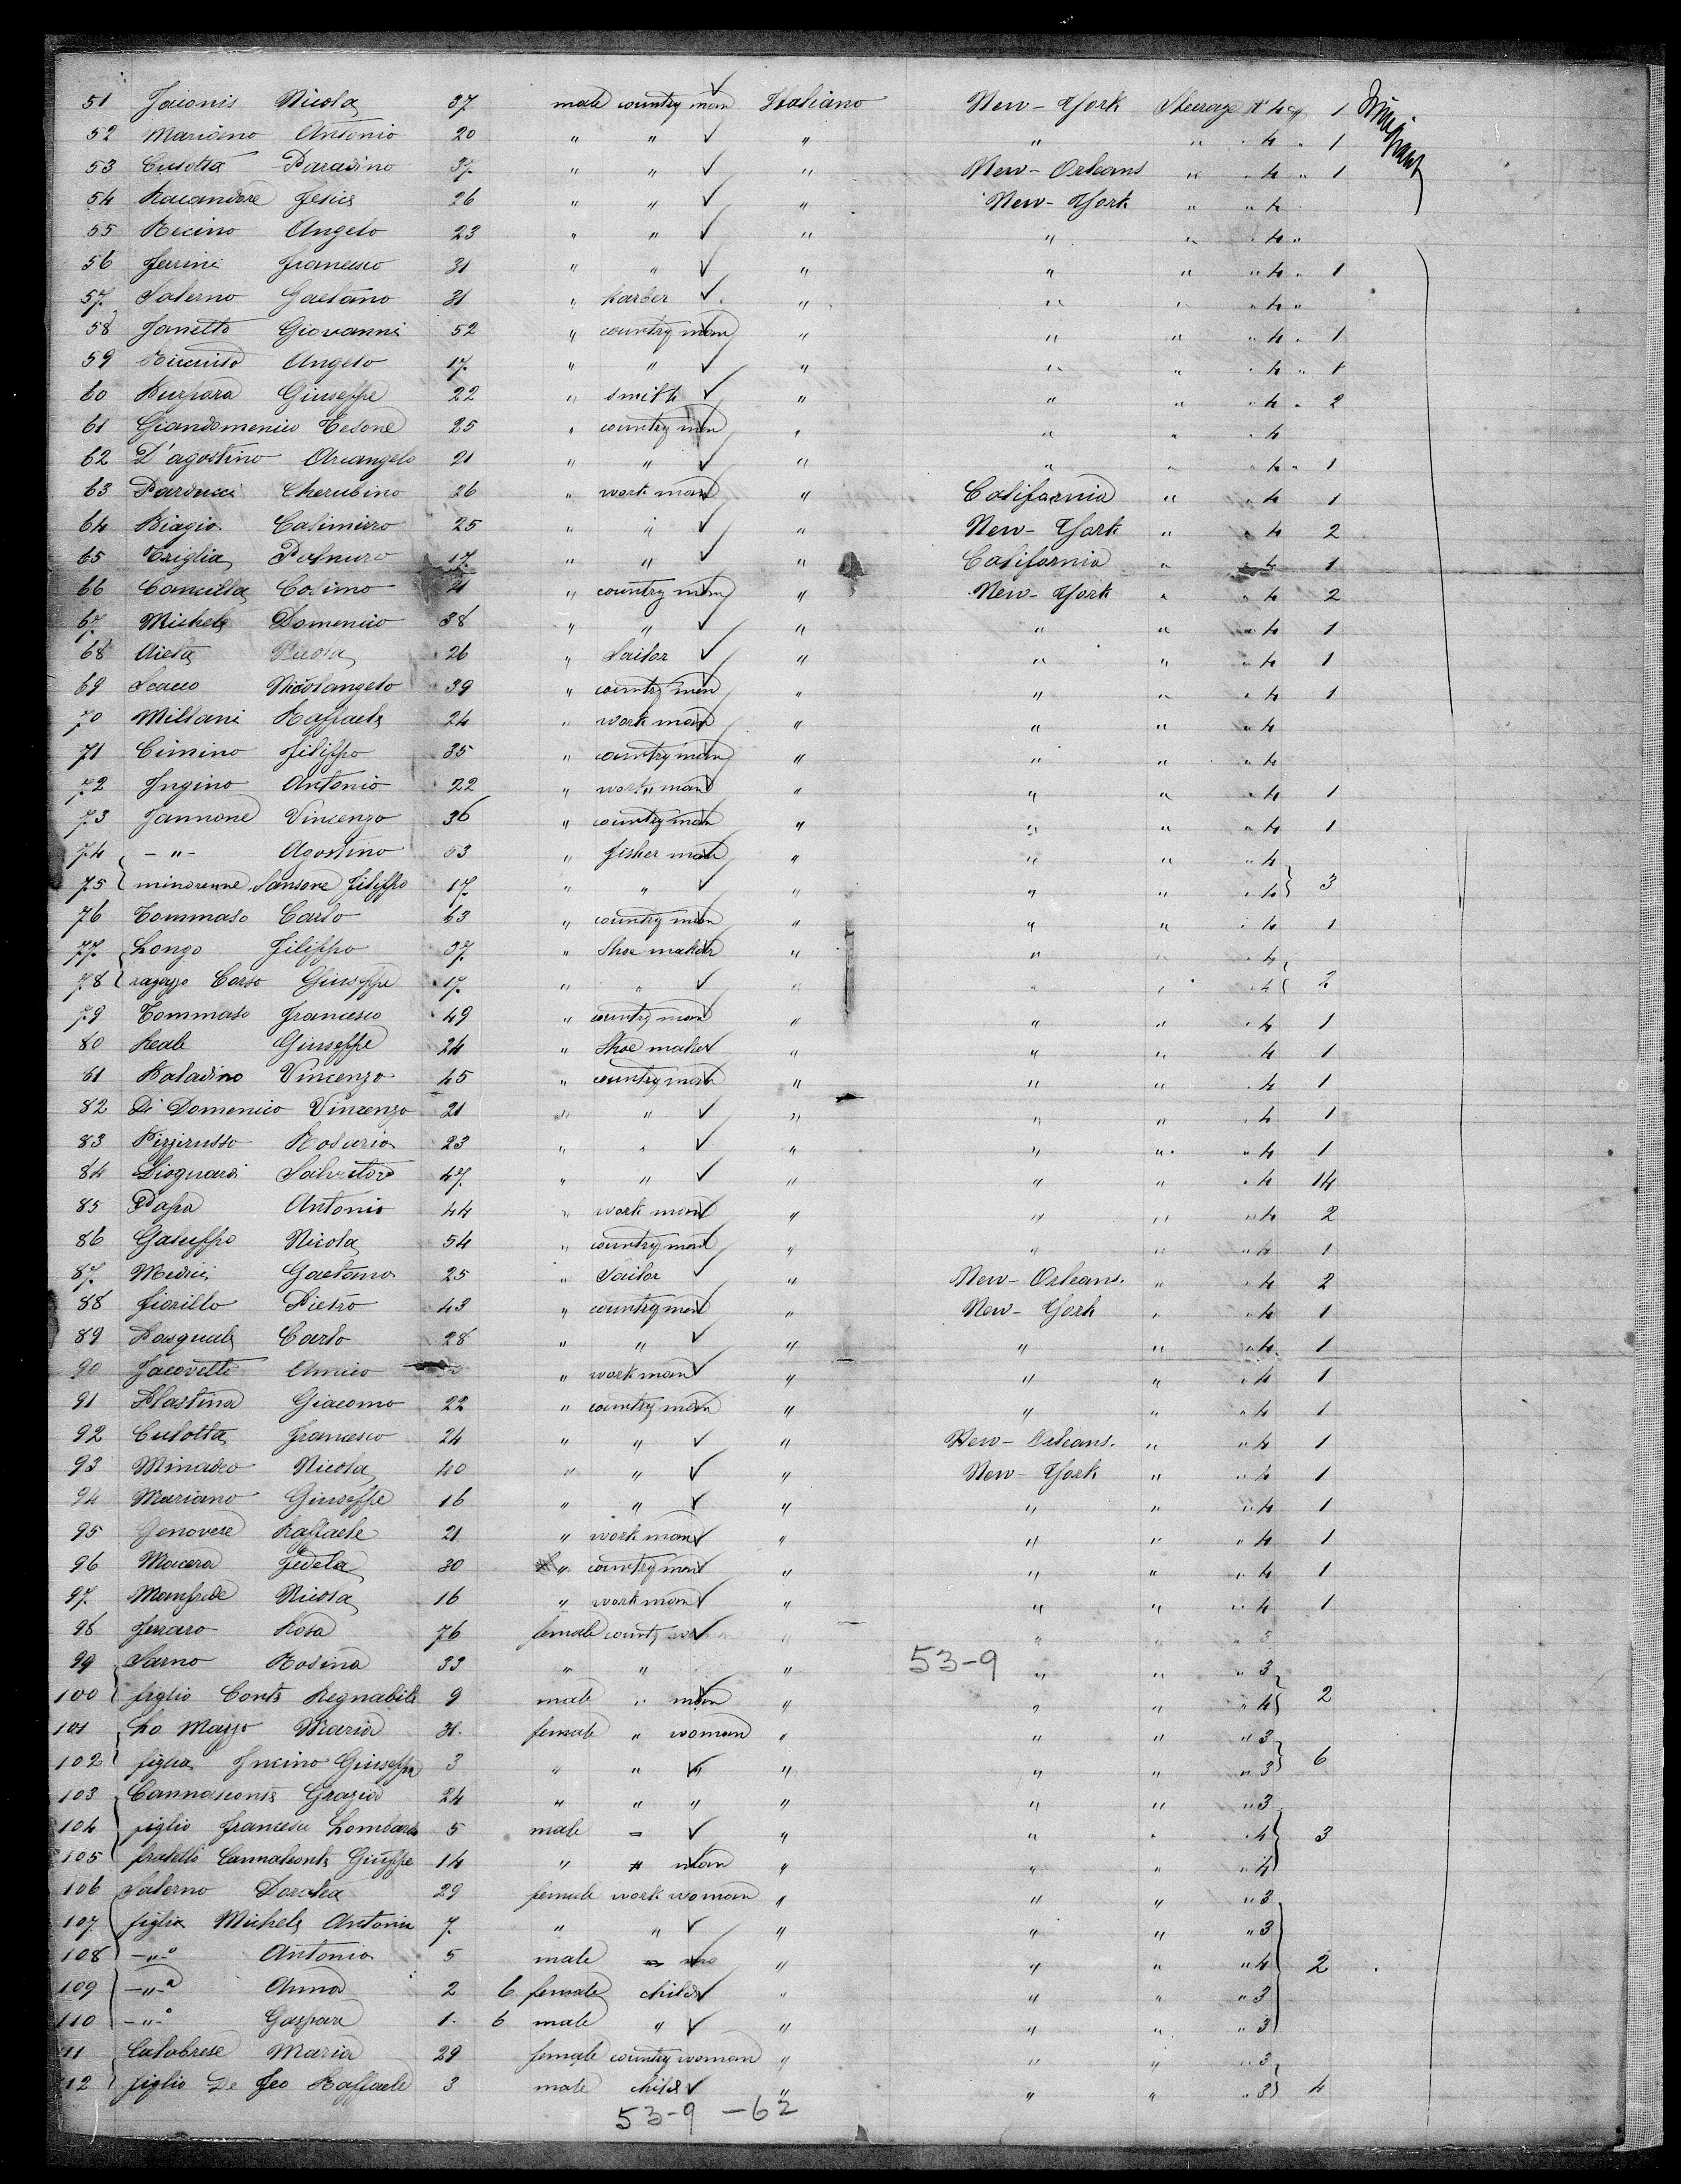 51 Jaionis Nicola 37 male country man Italiano New-York Steerage N 4 " 1
52 Mariano Antonio 20 " " " " " " 4 " 1
53 Cusotta Paradino 37 " " " New-Orleans " " 4 " 1
54 Racandore Felice 26 " " " New-York " " 4
55 Recino Angelo 23 " " " " " " 4 "
56 Ferrini Francesco 31 " " " " " " 4 " 1
57 Salerno Gaetano 31 " barber " " " " 4 "
58 Janetto Giovanni 52 " country man " " " " 4 " 1
59 Angelo 17 " " " " " " 4 " 1
60 Burpara Giuseppe 22 " smith " " " " 4 " 2
61 Giandomenico Tesone 25 " country man " " " " 4
62 D'agostino Arcangelo 21 " " " " " " 4 " 1
63 Parducci Cherubino 26 " work man " California " " 4 1
64 Biagio Casimirro 25 " " " New-York " " 4 2
65 Triglia 17 " " " California " " 4 1
66 Cosimo 21 " country man " New-York " " 4 2
67 Michele Domenico 38 " " " " " " 4 1
68 Aieta Nicola 26 " Sailor " " " " 4 1
69 Scacco Nicolangelo 39 " country man " " " " 4 1
70 Millani Raffaele 24 " work man " " " " 4
71 Cimino Filippo 35 " country man " " " " 4
72 Ingino Antonio 22 " work man " " " " 4 1
73 Jannone Vincenzo 36 " country man " " " " 4 1
74 - " - Agostino 53 " fisher man " " " " 4
75 minorenne Sansone Filippo 17 " " " " " " 4 3
76 Tommaso Carlo 63 " country man " " " " 4 1
77 Longo Filippo 37 " Shoe maker " " " " 4
78 ragazzo Corso Giuseppe 17 " " " " " " 4 2
79 Tommaso Francesco 49 " country man " " " " 4 1
80 Reale Giuseppe 24 " Shoe maker " " " " 4 1
81 Paladino Vincenzo 45 " country man " " " " 4 1
82 Di Domenico Vincenzo 21 " " " " " " 4 1
83 Pizzirusso Rosario 23 " " " " " " 4 1
84 Dioguardi Salvatore 47 " " " " " " 4 14
85 Papa Antonio 44 " work man " " " " 4 2
86 Galuppo Nicola 54 " country man " " " " 4 1
87 Medici Gaetano 25 " Sailor " New-Orleans. " " 4 2
88 Fiorillo Pietro 43 " country man " New-York " " 4 1
89 Pasquale Carlo 28 " " " " " " 4 1
90 Jacovetti Amico " work man " " " " 4 1
91 Plastina Giacomo 22 " country man " " " " 4 1
92 Culotta Francesco 24 " " " New-Orleans. " " 4 1
93 Minadeo Nicola 40 " " " New-York " " 4 1
94 Mariano Giuseppe 16 " " " " " " 4 1
95 Genovese Raffaele 21 " work man " " " " 4 1
96 Macera Fedela 30 " country man " " " " 4 1
97 Manfrede Nicola 16 " work man " " " " 4 1
98 Ferraro Rosa 76 female country woman " " " " 3
99 Sarno Rosina 33 " " " 53-9 " " " 3
100 figlio Conte Regnabile 9 male " man " " " " 4 2
101 Lo Mazzo Maria 31 female " woman " " " " 3
102 figlia Incino Giuseppa 3 " " " " " " " 3 6
103 Cannalconte Grazia 24 " " " " " " " 3
104 figlio Francesco Lombardo 5 male = " " " " 4 3
105 fratello Cannalconte Giuseppe 14 " " man " " " " 4
106 Salerno Dorotea 29 female work woman " " " " 3
107 figlia Michele Antonia 7 " " " " " " 3
108 - " - o Antonio 5 male " " " " 4 2
109 - " - a Anna 2 6 female child " " " " 3
110 - " - o Gaspare 1. 6 male " " " " " 3
111 Calabrese Maria 29 female country woman " " " " 3
112 figlio De Feo Raffaele 3 male child " " " " 3 4
53-9 -62